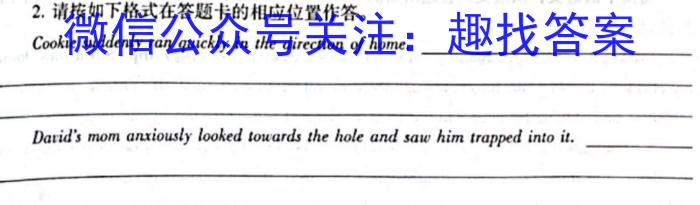 2. 请按如下格式在答题卡的相应位置作答。
微信公众号关注：趣找答案
Cookie suddenly ran quickly in the direction of home.
David's mom anxiously looked towards the hole and saw him trapped into it.